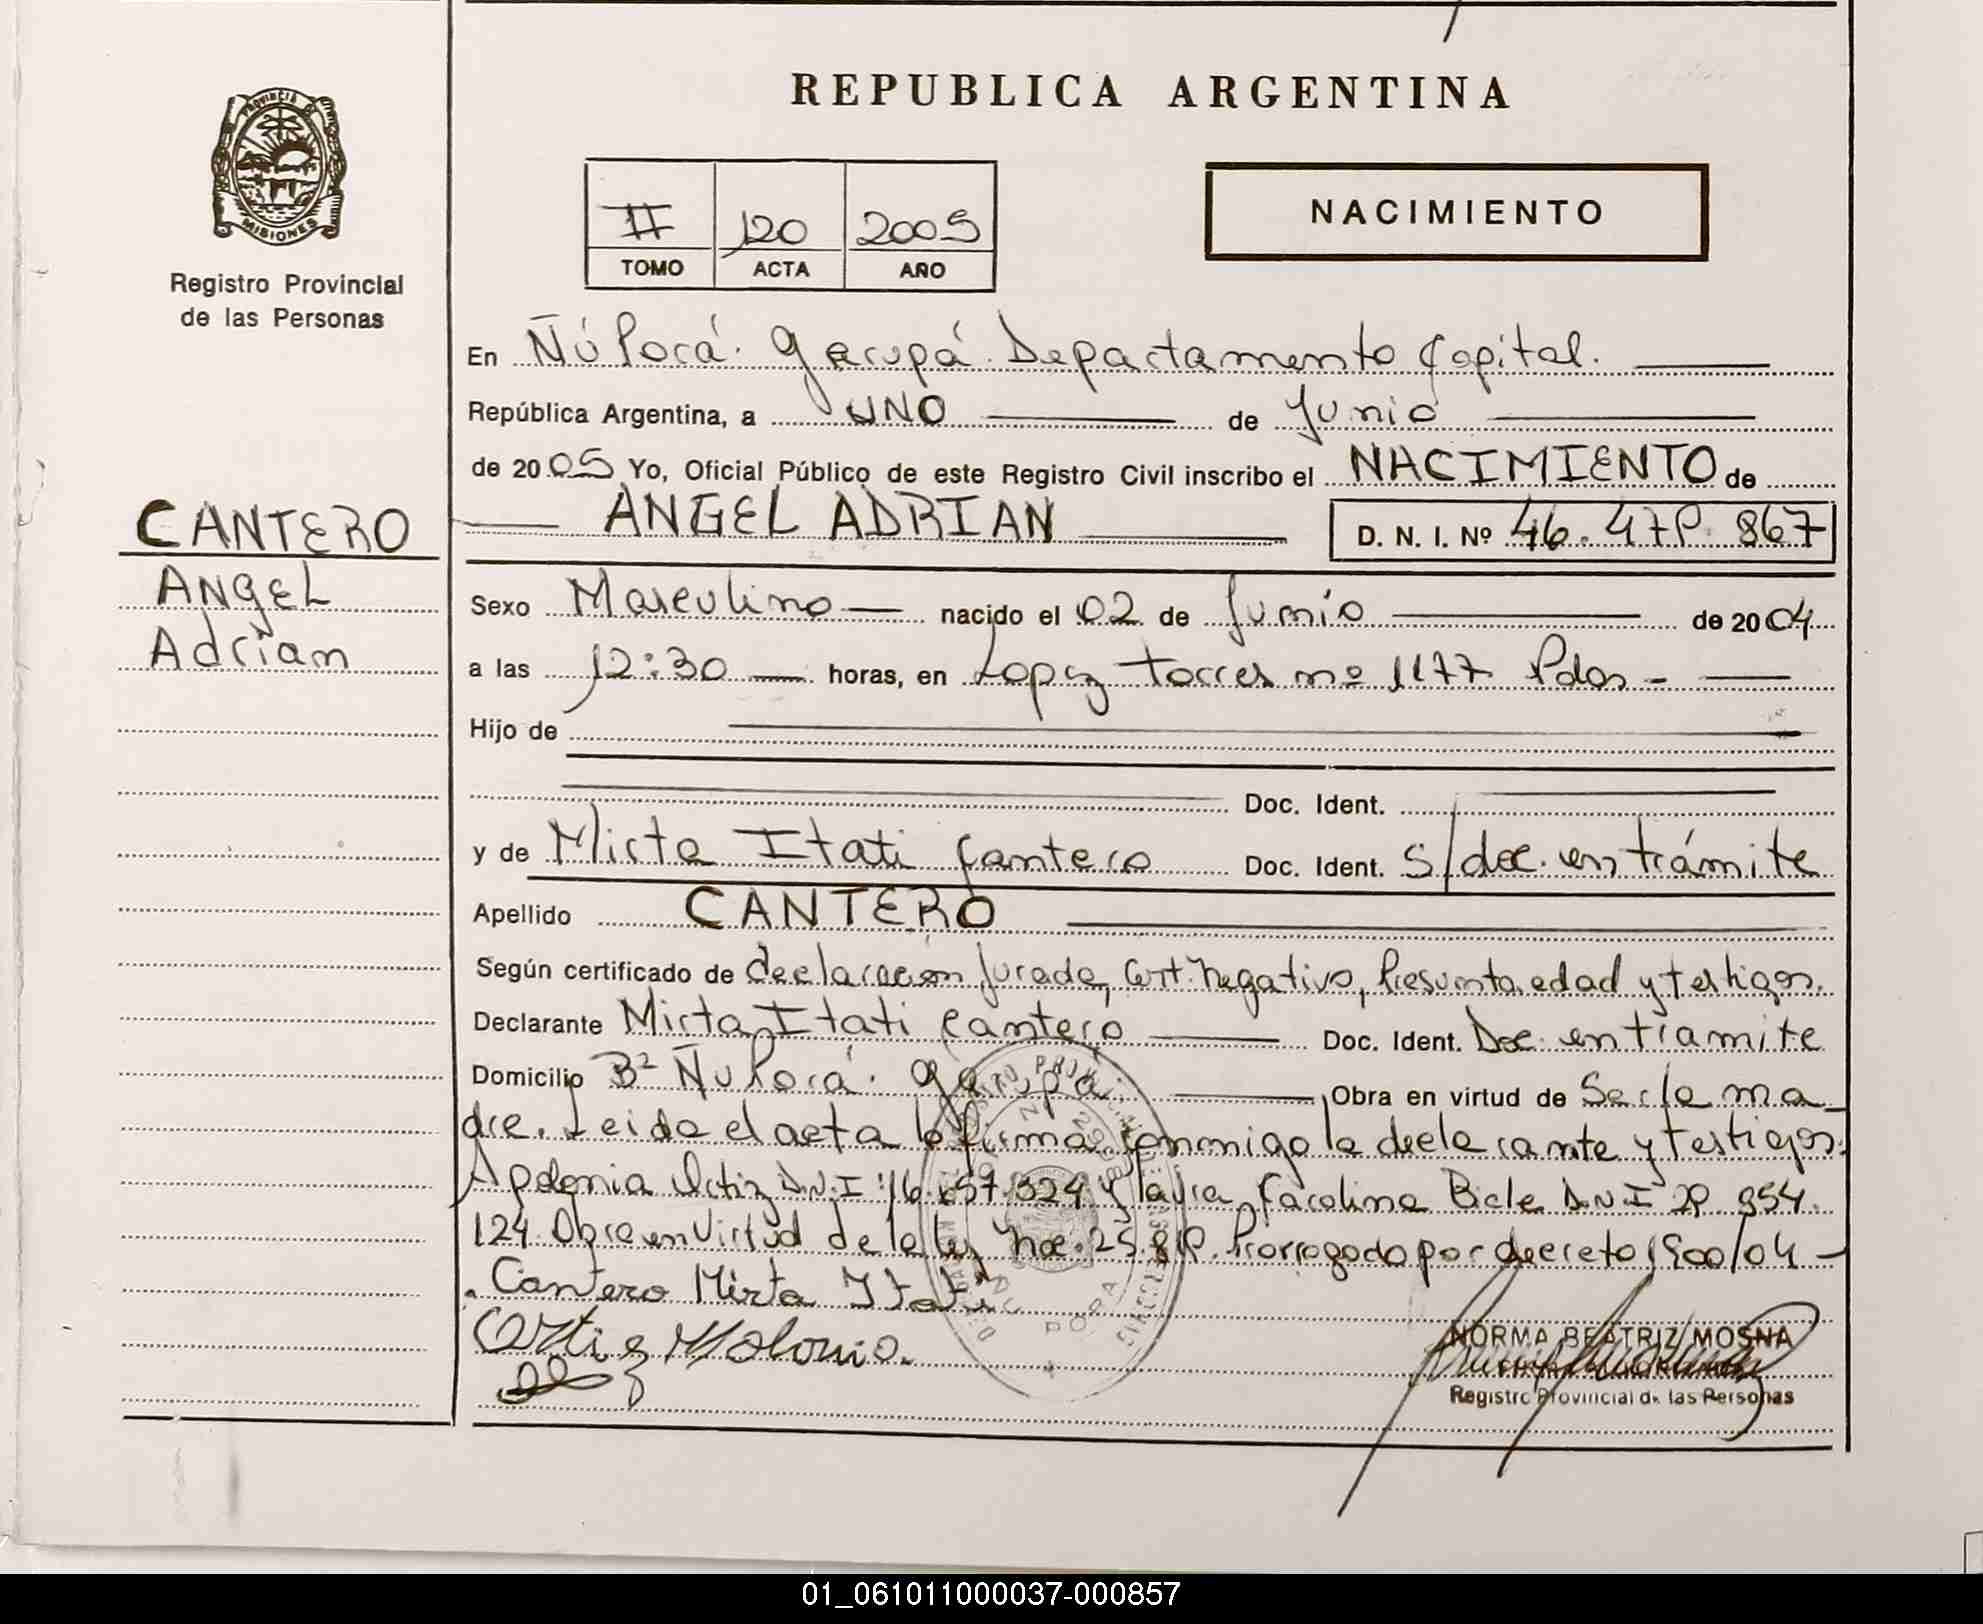 REPUBLICA ARGENTINA
PROVINCIA DE MISIONES
Registro Provincial
de las Personas
II 120 2005
TOMO ACTA AÑO
NACIMIENTO
En Ñú Porá. Garupá. Departamento Capital.
República Argentina, a UNO de Junio
de 2005 Yo, Oficial Público de este Registro Civil inscribo el NACIMIENTO de
ANGEL ADRIAN D. N. I. Nº 46.479.867
CANTERO
ANGEL
Adrian
Sexo Masculino nacido el 02 de Junio de 2004
a las 12:30 horas, en Lopez Torres nº 1177 Pdas -
Hijo de
Doc. Ident.
y de Mirta Itati Cantero Doc. Ident. S/doc. en trámite
Apellido CANTERO
Según certificado de declaracion Jurada, Cert. negativo, Presunta edad y testigos.
Declarante Mirta Itati Cantero Doc. Ident. Doc. en tramite
Domicilio Bº Ñu Porá. Garupá Obra en virtud de Ser la ma
dre. Leida el acta la firma conmigo la declarante y testigos.
Apolonia Ortiz D.N.I 16.657.324 y Carolina Bele D.N.I 29.954.
124. Obra en Virtud de la ley nº 25.819. Prorrogado por decreto 1900/04 -
Cantero Mirta Itati
Ortiz Apolonia.
NORMA BEATRIZ MOSNA
Registro Provincial de las Personas
01_061011000037-000857